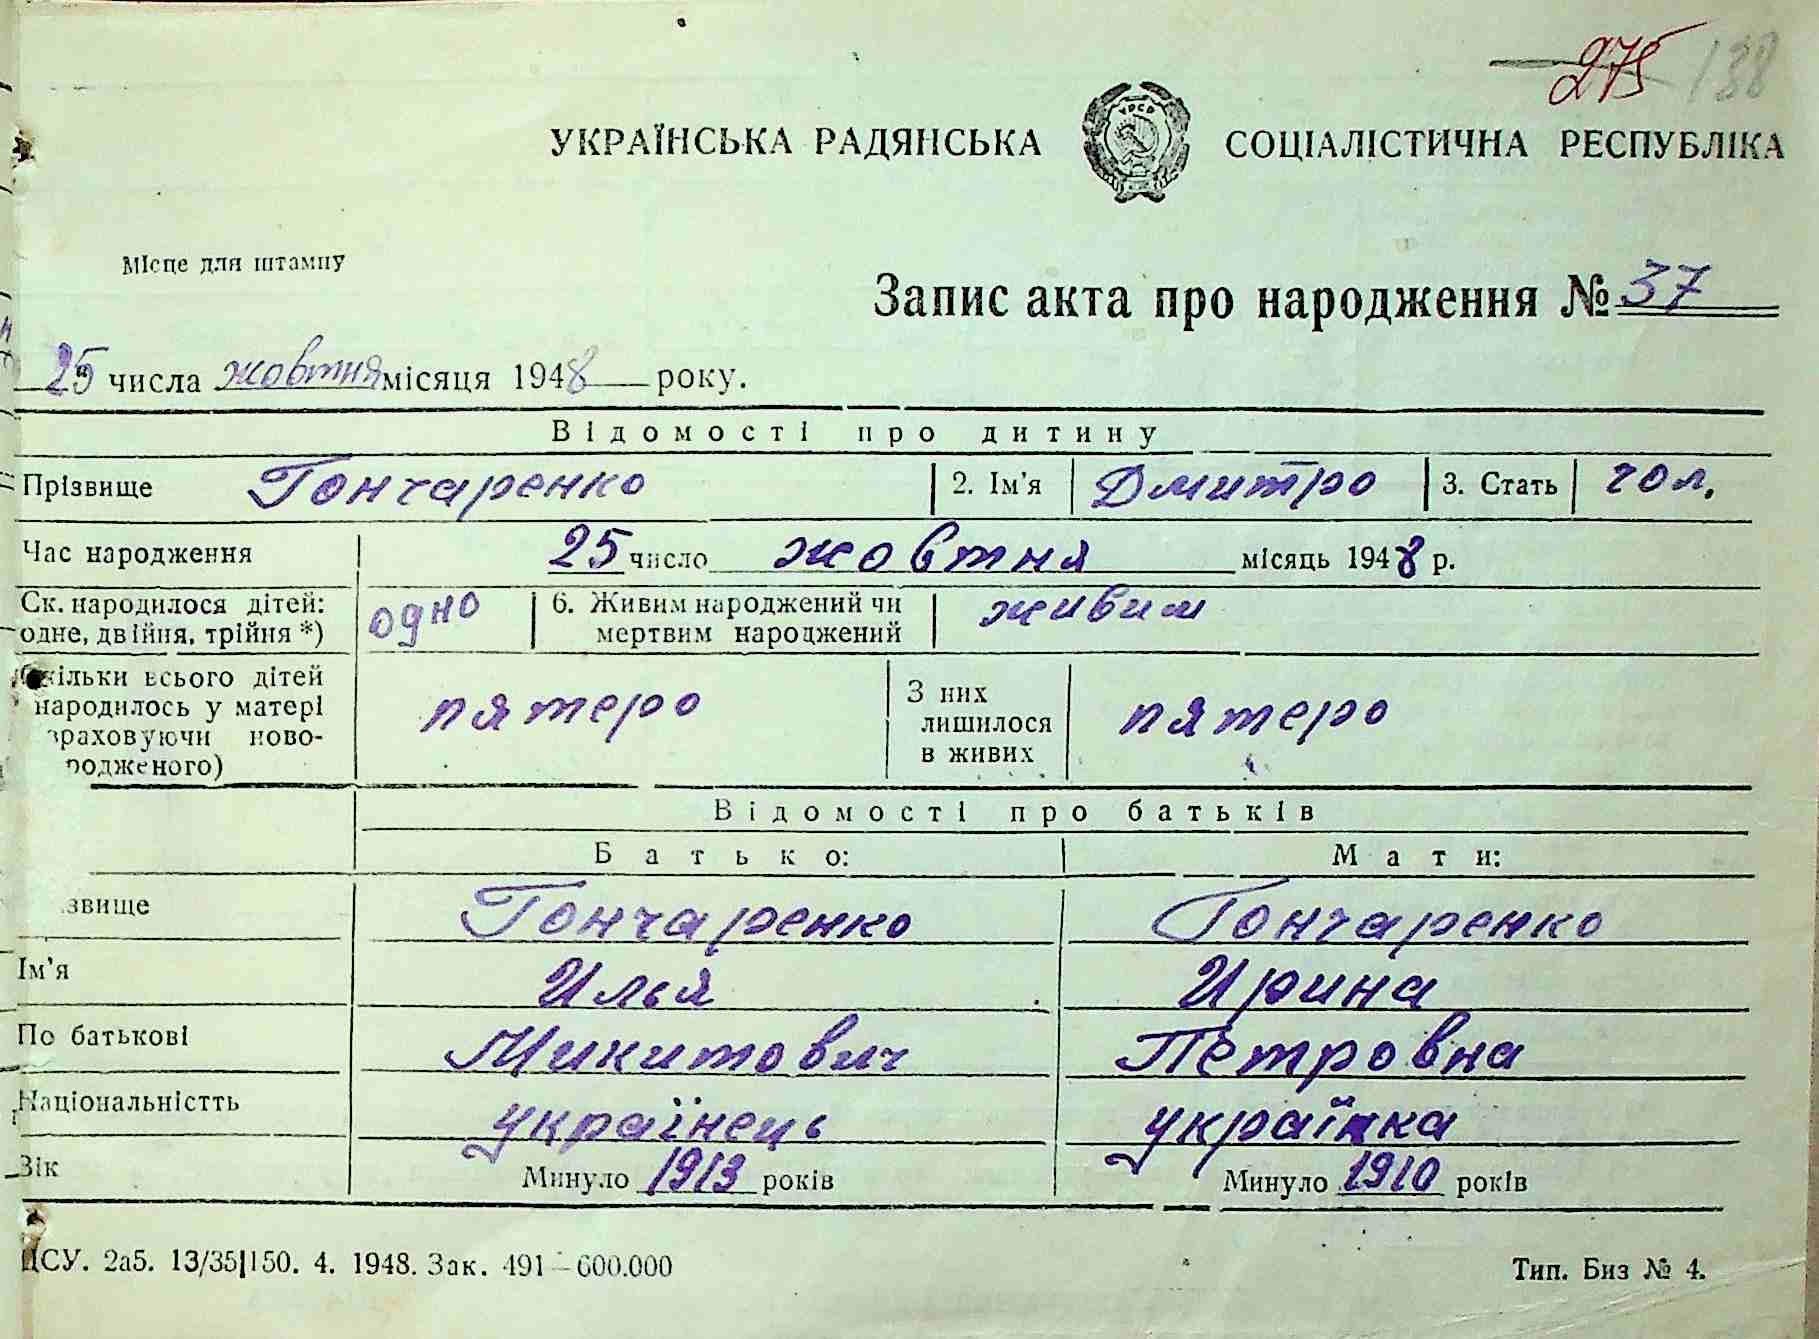 275 138
УКРАЇНСЬКА РАДЯНСЬКА СОЦІАЛІСТИЧНА РЕСПУБЛІКА
УРСР
Місце для штампу
Запис акта про народження № 37
25 числа жовтня місяця 1948 року.
Відомості про дитину
Прізвище Гончаренко 2. Ім'я Дмитро 3. Стать чол.
Час народження 25 число жовтня місяць 1948 р.
Ск. народилося дітей: одно 6. Живим народжений чи живим
одне, двійня, трійня *) мертвим народжений
кільки всього дітей З них
народилось у матері пятеро лишилося пятеро
враховуючи ново- в живих
родженого)
Відомості про батьків
Батько: Мати:
звище Гончаренко Гончаренко
Ім'я Илья Ирина
По батькові Микитович Петровна
Національністть українець українка
Вік Минуло 1913 років Минуло 1910 років
ЦСУ. 2а5. 13/35|150. 4. 1948. Зак. 491–600.000 Тип. Биз № 4.